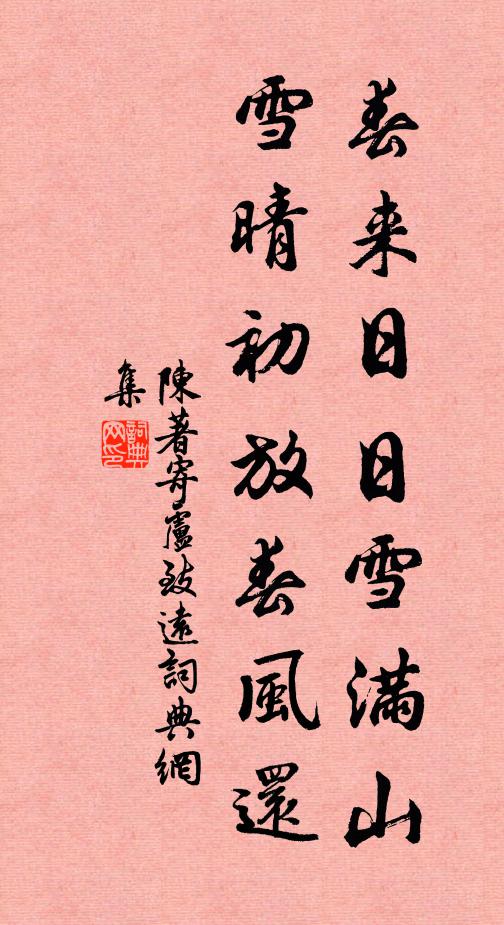 春来日日雪满山
雪晴初放春風還
陳著寄盧致遠詞典網
集
詞典网印